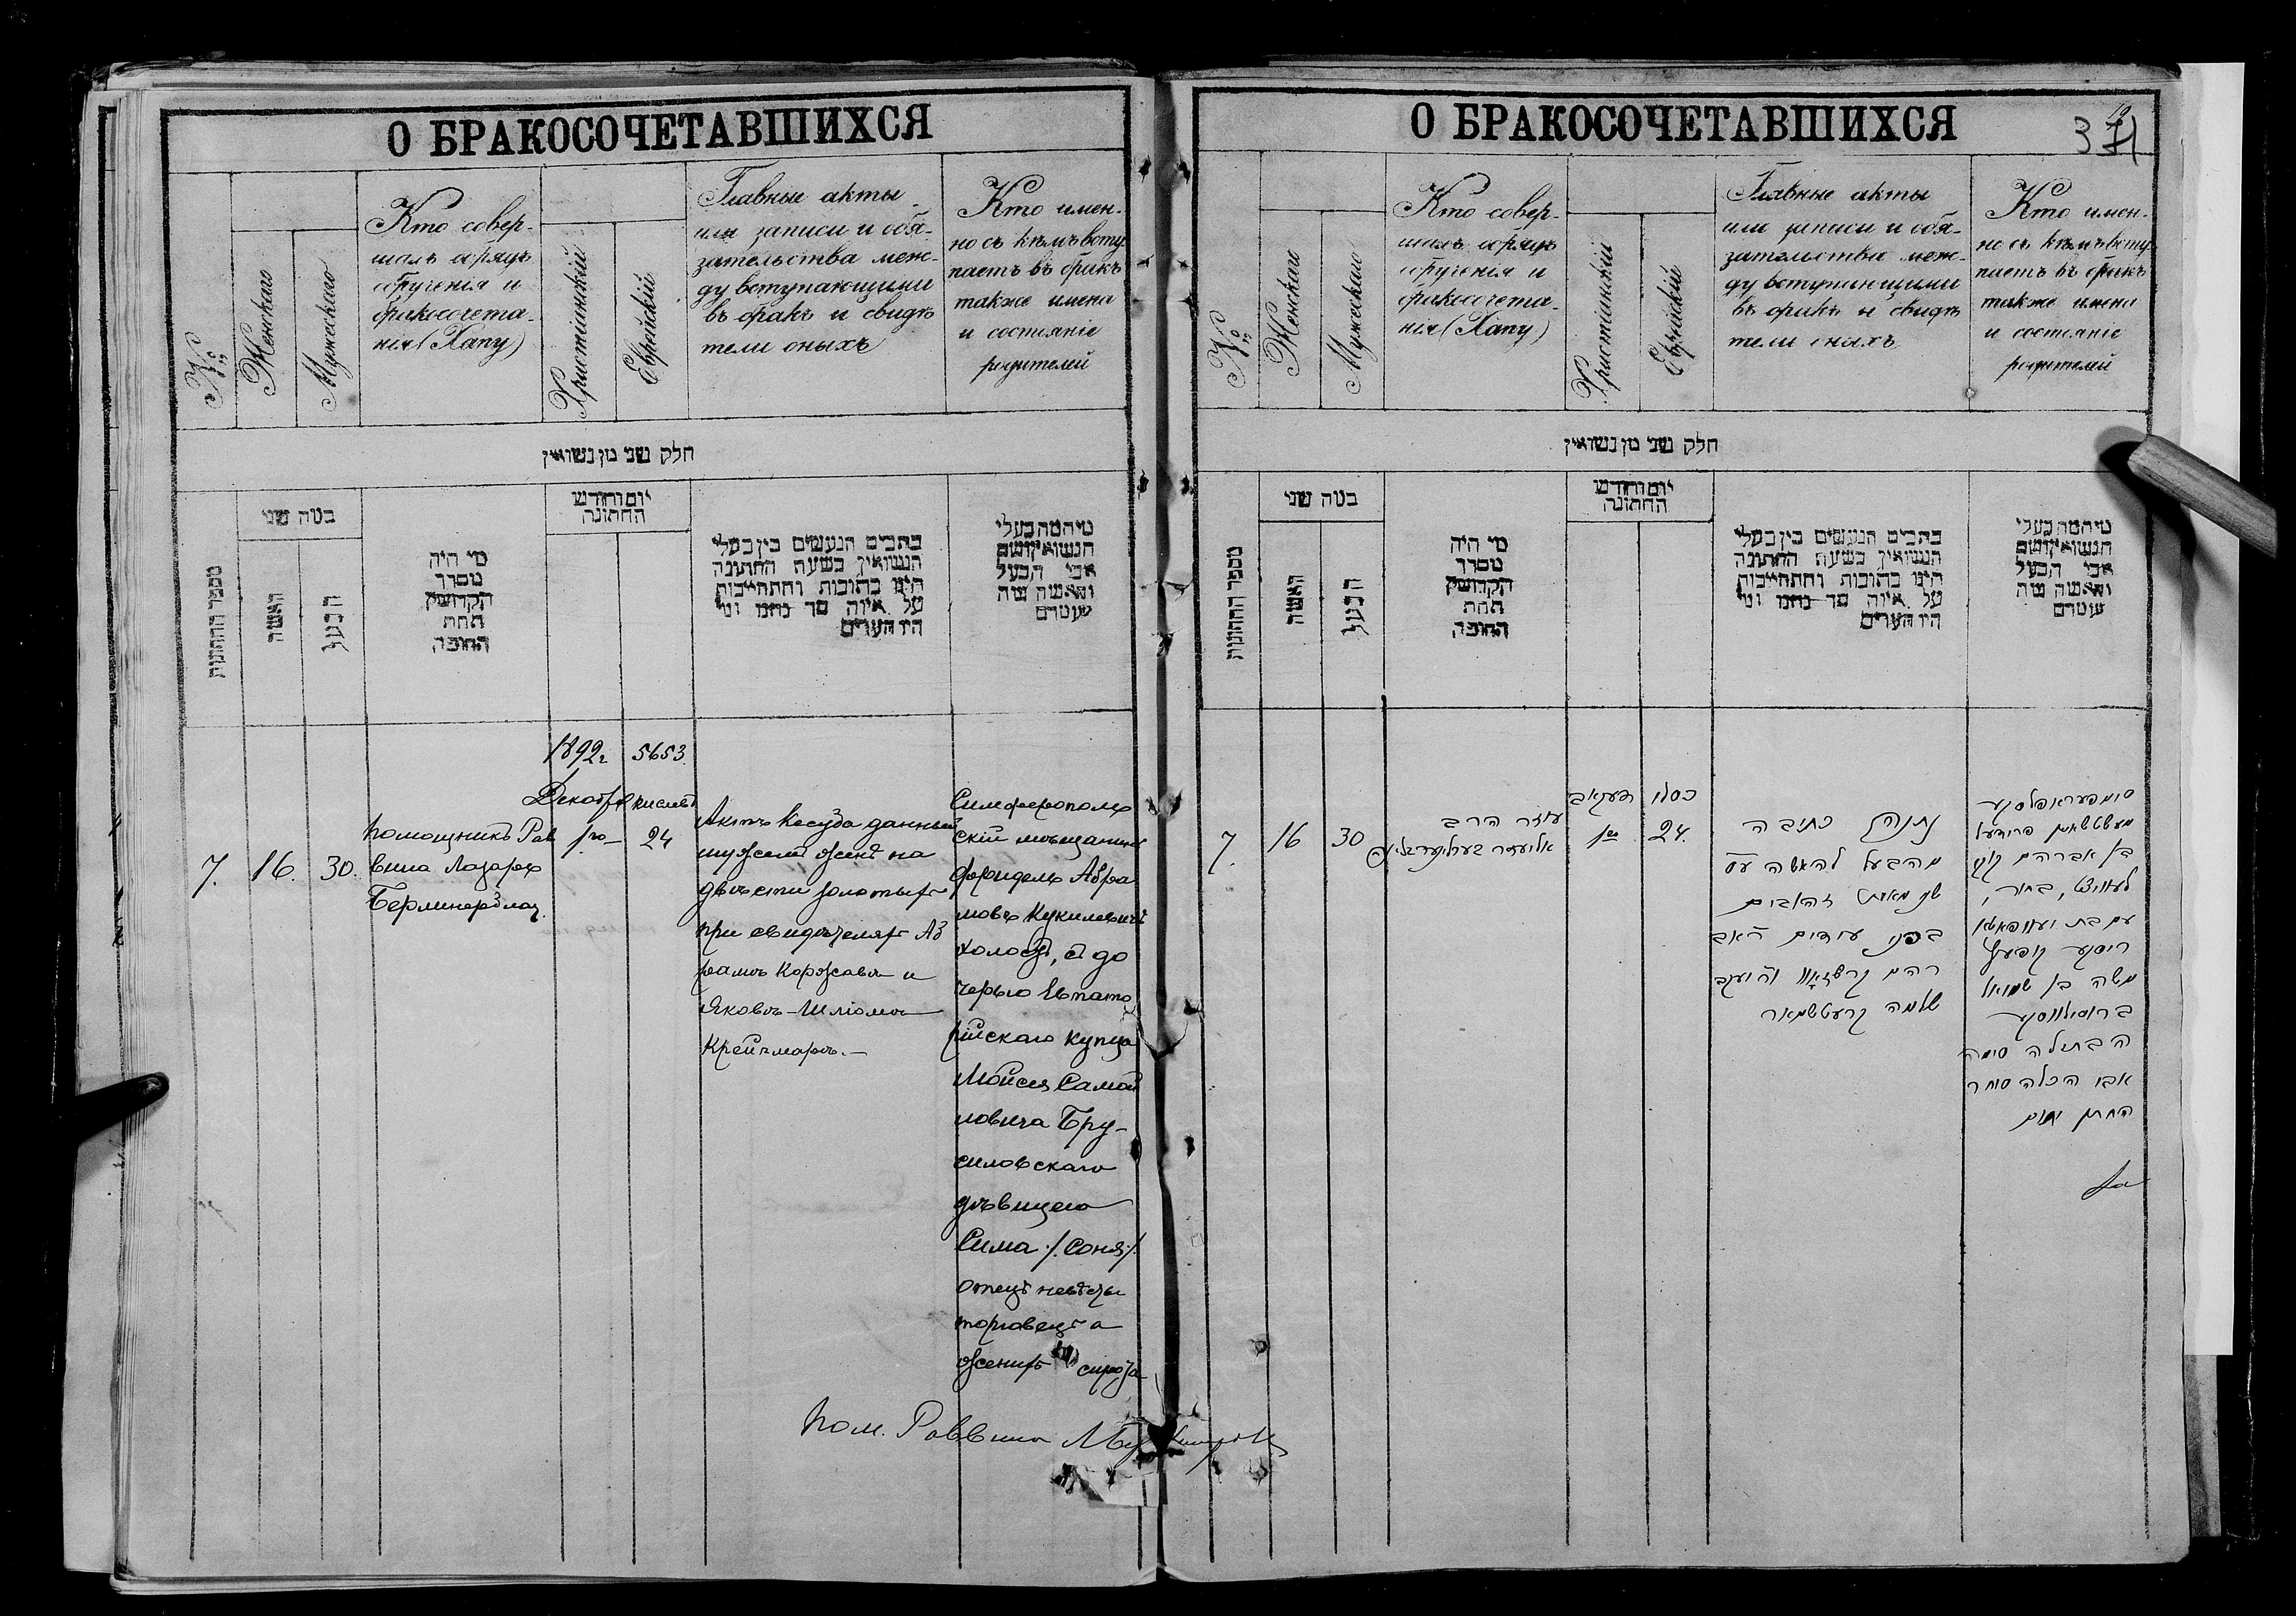 О БРАКОСОЧЕТАВШИХСЯ
№
Женскаго
Мужескаго
Кто совер-
шалъ обрядъ
обрученія и
бракосочета-
нія (Хапу)
Христіанскій
Еврейскій
Главные акты
или записи и обя-
зательства меж-
ду вступающими
въ бракъ и свидѣ
тели оныхъ
Кто имен-
но съ кѣмъ всту
паетъ въ бракъ
также имена
и состояніе
родителей
חלק שני מן נשואין
מספר החתונות
במה שני
האשה
הבעל
מי היה
מסדר
הקדושין
תחת
החופה
יום וחדש
החתונה
כתבים הנעשים בין בעלי
הנשואין בשעת החתונה
היינו כתובות והתחייבות
על איזה סך נתנו ומי
היו העדים
מי המה בעלי
הנשואין ושם
אבי הבעל
והאשה מה
עוסקים
7.
16.
30.
Помощникъ Рав
вина Лазарь
Берлинерблау
1892г
Декабря
1го
5653.
кислевъ
24
Актъ Кесуба данный
мужемъ женѣ на
двѣсти золотыхъ
при свидѣтеляхъ Аб
рамъ Коржавъ и
Яковъ-Шліома
Крейчмаръ.
Симферополь
скій мѣщанинъ
Фридель Абра
мовъ Кукилевичъ
холостъ, съ до
черью Евпато
рійскаго купца
Мойсея Самой
ловича Бру-
силовскаго
дѣвицею
Сима /. Соня ./
отецъ невѣсты
торговецъ а
женихъ сирота
Пом. Раввина
О БРАКОСОЧЕТАВШИХСЯ
№
Женскаго
Мужескаго
Кто совер-
шалъ обрядъ
обрученія и
бракосочета-
нія (Хапу)
Христіанскій
Еврейскій
Главные акты
или записи и обя-
зательства меж-
ду вступающими
въ бракъ и свидѣ
тели оныхъ
Кто имен-
но съ кѣмъ всту
паетъ въ бракъ
также имена
и состояніе
родителей
חלק שני מן נשואין
מספר החתונות
במה שני
האשה
הבעל
מי היה
מסדר
הקדושין
תחת
החופה
יום וחדש
החתונה
כתבים הנעשים בין בעלי
הנשואין בשעת החתונה
היינו כתובות והתחייבות
על איזה סך נתנו ומי
היו העדים
מי המה בעלי
הנשואין ושם
אבי הבעל
והאשה מה
עוסקים
7.
16
30
עוזר הרב
אליעזר בערלינערבלויא
דעקאב
1го
כסלו
24.
נתנה כתובה
מהבעל להאשה על
שני מאות זהובים
בפני עידים ה׳ אב
רהם וה׳ יעקב
שלמה קרעטשמאר
סימפעראפלסקער
מעשטשאנין פרידעל
בן אברהם קוקי
לעוויטש, בחור,
עם בת יעוופאטא
ריסקער קופעץ
משה בן שמואל
ברוסילווסקער
הבתולה סימה
אבי הכלה סוחר
החתן יתום